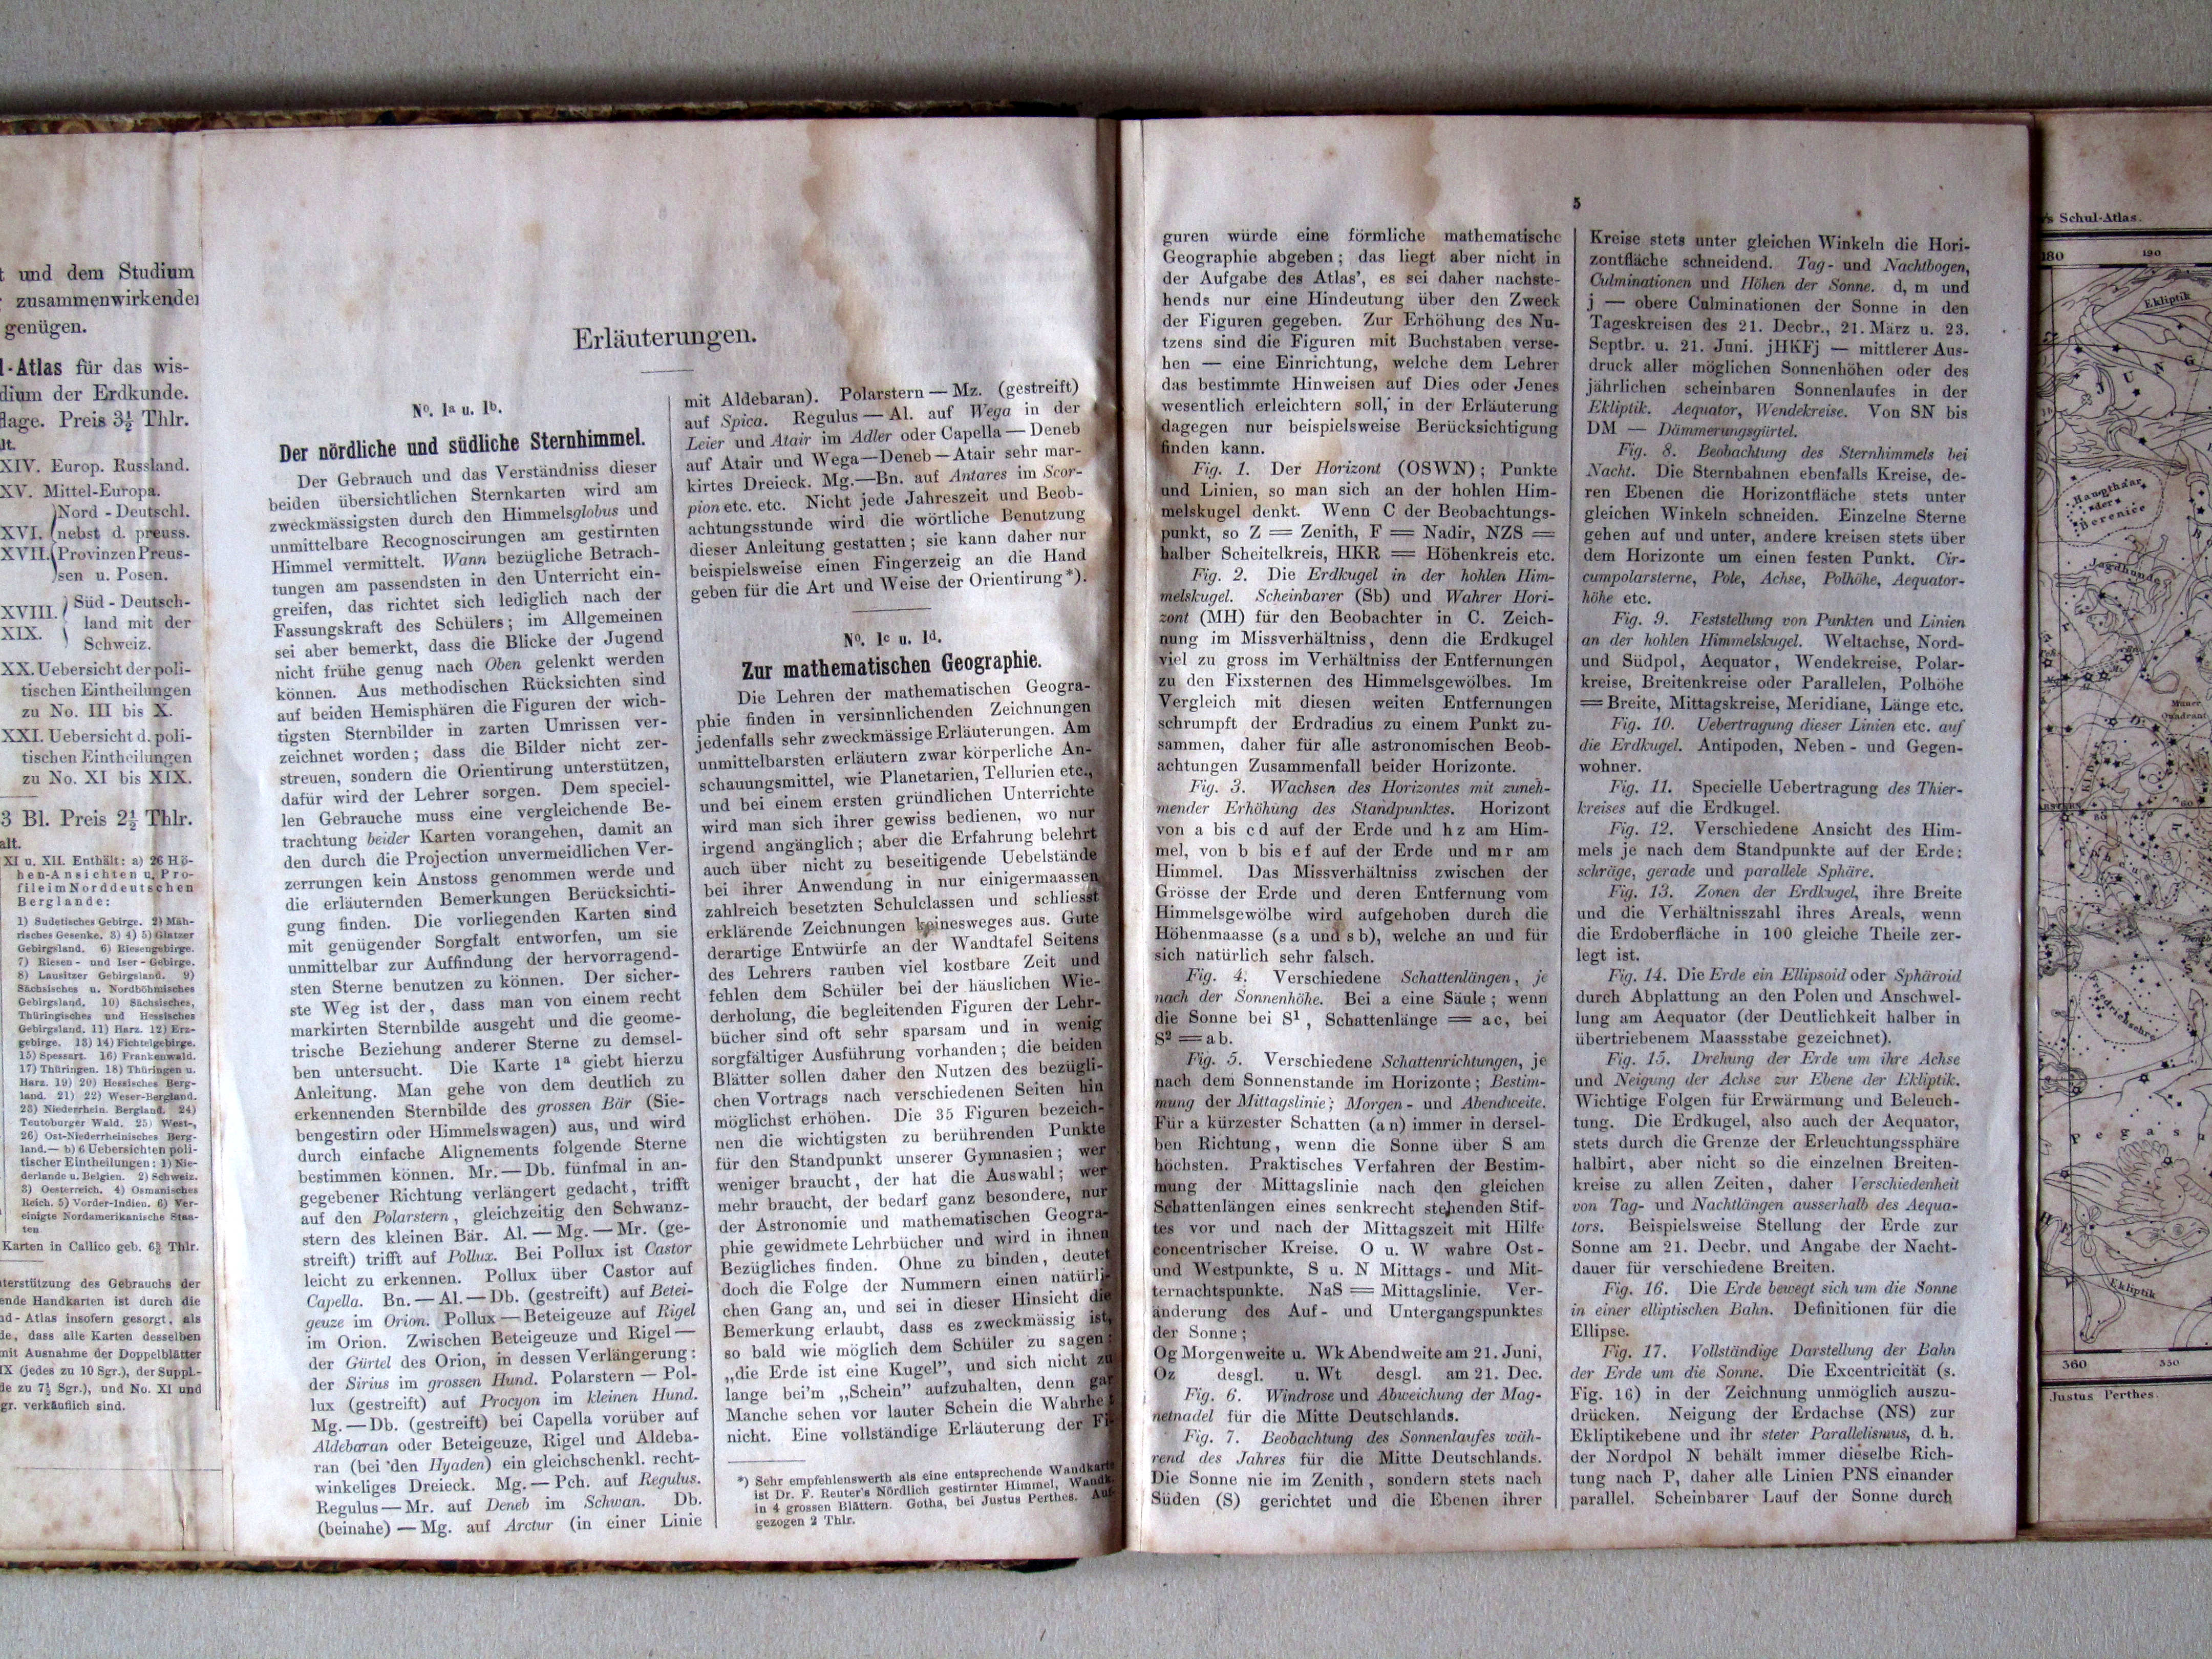 t und dem Studium
zusammenwirkender
genügen.
l-Atlas für das wis-
dium der Erdkunde.
flage. Preis 3½ Thlr.
lt.
XIV. Europ. Russland.
XV. Mittel-Europa.
Nord - Deutschl.
XVI. nebst d. preuss.
XVII. Provinzen Preus-
sen u. Posen.
XVIII. Süd - Deutsch-
XIX. land mit der
Schweiz.
XX. Uebersicht der poli-
tischen Eintheilungen
zu No. III bis X.
XXI. Uebersicht d. poli-
tischen Eintheilungen
zu No. XI bis XIX.
3 Bl. Preis 2½ Thlr.
alt.
XI u. XII. Enthält: a) 26 Hö-
hen-Ansichten u. Pro-
file im Norddeutschen
Berglande:
1) Sudetisches Gebirge. 2) Mäh-
risches Gesenke. 3) 4) 5) Glatzer
Gebirgsland. 6) Riesengebirge.
7) Riesen - und Iser - Gebirge.
8) Lausitzer Gebirgsland. 9)
Sächsisches u. Nordböhmisches
Gebirgsland. 10) Sächsisches,
Thüringisches und Hessisches
Gebirgsland. 11) Harz. 12) Erz-
gebirge. 13) 14) Fichtelgebirge.
15) Spessart. 16) Frankenwald.
17) Thüringen. 18) Thüringen u.
Harz. 19) 20) Hessisches Berg-
land. 21) 22) Weser-Bergland.
23) Niederrhein. Bergland. 24)
Teutoburger Wald. 25) West-,
26) Ost-Niederrheinisches Berg-
land.— b) 6 Uebersichten poli-
tischer Eintheilungen: 1) Nie-
derlande u. Belgien. 2) Schweiz.
3) Oesterreich. 4) Osmanisches
Reich. 5) Vorder-Indien. 6) Ver-
einigte Nordamerikanische Staa-
ten
Karten in Callico geb. 6⅔ Thlr.
nterstützung des Gebrauchs der
ende Handkarten ist durch die
nd - Atlas insofern gesorgt, als
de, dass alle Karten desselben
mit Ausnahme der Doppelblätter
IX (jedes zu 10 Sgr.), der Suppl.-
de zu 7½ Sgr.), und No. XI und
gr. verkäuflich sind.
Erläuterungen.
No. 1a u. 1b.
Der nördliche und südliche Sternhimmel.
Der Gebrauch und das Verständniss dieser
beiden übersichtlichen Sternkarten wird am
zweckmässigsten durch den Himmelsglobus und
unmittelbare Recognoscirungen am gestirnten
Himmel vermittelt. Wann bezügliche Betrach-
tungen am passendsten in den Unterricht ein-
greifen, das richtet sich lediglich nach der
Fassungskraft des Schülers; im Allgemeinen
sei aber bemerkt, dass die Blicke der Jugend
nicht frühe genug nach Oben gelenkt werden
können. Aus methodischen Rücksichten sind
auf beiden Hemisphären die Figuren der wich-
tigsten Sternbilder in zarten Umrissen ver-
zeichnet worden; dass die Bilder nicht zer-
streuen, sondern die Orientirung unterstützen,
dafür wird der Lehrer sorgen. Dem speciel-
len Gebrauche muss eine vergleichende Be-
trachtung beider Karten vorangehen, damit an
den durch die Projection unvermeidlichen Ver-
zerrungen kein Anstoss genommen werde und
die erläuternden Bemerkungen Berücksichti-
gung finden. Die vorliegenden Karten sind
mit genügender Sorgfalt entworfen, um sie
unmittelbar zur Auffindung der hervorragend-
sten Sterne benutzen zu können. Der sicher-
ste Weg ist der, dass man von einem recht
markirten Sternbilde ausgeht und die geome-
trische Beziehung anderer Sterne zu demsel-
ben untersucht. Die Karte 1a giebt hierzu
Anleitung. Man gehe von dem deutlich zu
erkennenden Sternbilde des grossen Bär (Sie-
bengestirn oder Himmelswagen) aus, und wird
durch einfache Alignements folgende Sterne
bestimmen können. Mr. — Db. fünfmal in an-
gegebener Richtung verlängert gedacht, trifft
auf den Polarstern, gleichzeitig den Schwanz-
stern des kleinen Bär. Al. — Mg. — Mr. (ge-
streift) trifft auf Pollux. Bei Pollux ist Castor
leicht zu erkennen. Pollux über Castor auf
Capella. Bn. — Al. — Db. (gestreift) auf Betei-
geuze im Orion. Pollux — Beteigeuze auf Rigel
im Orion. Zwischen Beteigeuze und Rigel —
der Gürtel des Orion, in dessen Verlängerung:
der Sirius im grossen Hund. Polarstern — Pol-
lux (gestreift) auf Procyon im kleinen Hund.
Mg. — Db. (gestreift) bei Capella vorüber auf
Aldebaran oder Beteigeuze, Rigel und Aldeba-
ran (bei den Hyaden) ein gleichschenkl. recht-
winkeliges Dreieck. Mg. — Pch. auf Regulus.
Regulus — Mr. auf Deneb im Schwan. Db.
(beinahe) — Mg. auf Arctur (in einer Linie
mit Aldebaran). Polarstern — Mz. (gestreift)
auf Spica. Regulus — Al. auf Wega in der
Leier und Atair im Adler oder Capella — Deneb
auf Atair und Wega — Deneb — Atair sehr mar-
kirtes Dreieck. Mg. — Bn. auf Antares im Scor-
pion etc. etc. Nicht jede Jahreszeit und Beob-
achtungsstunde wird die wörtliche Benutzung
dieser Anleitung gestatten; sie kann daher nur
beispielsweise einen Fingerzeig an die Hand
geben für die Art und Weise der Orientirung*).
No. 1c u. 1d.
Zur mathematischen Geographie.
Die Lehren der mathematischen Geogra-
phie finden in versinnlichenden Zeichnungen
jedenfalls sehr zweckmässige Erläuterungen. Am
unmittelbarsten erläutern zwar körperliche An-
schauungsmittel, wie Planetarien, Tellurien etc.,
und bei einem ersten gründlichen Unterrichte
wird man sich ihrer gewiss bedienen, wo nur
irgend angänglich; aber die Erfahrung belehrt
auch über nicht zu beseitigende Uebelstände
bei ihrer Anwendung in nur einigermaassen
zahlreich besetzten Schulclassen und schliesst
erklärende Zeichnungen keinesweges aus. Gute
derartige Entwürfe an der Wandtafel Seitens
des Lehrers rauben viel kostbare Zeit und
fehlen dem Schüler bei der häuslichen Wie-
derholung, die begleitenden Figuren der Lehr-
bücher sind oft sehr sparsam und in wenig
sorgfältiger Ausführung vorhanden; die beiden
Blätter sollen daher den Nutzen des bezügli-
chen Vortrags nach verschiedenen Seiten hin
möglichst erhöhen. Die 35 Figuren bezeich-
nen die wichtigsten zu berührenden Punkte
für den Standpunkt unserer Gymnasien; wer
weniger braucht, der hat die Auswahl; wer
mehr braucht, der bedarf ganz besondere, nur
der Astronomie und mathematischen Geogra-
phie gewidmete Lehrbücher und wird in ihnen
Bezügliches finden. Ohne zu binden, deutet
doch die Folge der Nummern einen natürli-
chen Gang an, und sei in dieser Hinsicht die
Bemerkung erlaubt, dass es zweckmässig ist,
so bald wie möglich dem Schüler zu sagen:
„die Erde ist eine Kugel”, und sich nicht zu
lange bei'm „Schein” aufzuhalten, denn gar
Manche sehen vor lauter Schein die Wahrheit
nicht. Eine vollständige Erläuterung der Fi-
*) Sehr empfehlenswerth als eine entsprechende Wandkarte
ist Dr. F. Reuter's Nördlich gestirnter Himmel, Wandk.
in 4 grossen Blättern. Gotha, bei Justus Perthes. Auf-
gezogen 2 Thlr.
5
guren würde eine förmliche mathematische
Geographie abgeben; das liegt aber nicht in
der Aufgabe des Atlas', es sei daher nachste-
hends nur eine Hindeutung über den Zweck
der Figuren gegeben. Zur Erhöhung des Nu-
tzens sind die Figuren mit Buchstaben verse-
hen — eine Einrichtung, welche dem Lehrer
das bestimmte Hinweisen auf Dies oder Jenes
wesentlich erleichtern soll, in der Erläuterung
dagegen nur beispielsweise Berücksichtigung
finden kann.
Fig. 1. Der Horizont (OSWN); Punkte
und Linien, so man sich an der hohlen Him-
melskugel denkt. Wenn C der Beobachtungs-
punkt, so Z = Zenith, F = Nadir, NZS =
halber Scheitelkreis, HKR = Höhenkreis etc.
Fig. 2. Die Erdkugel in der hohlen Him-
melskugel. Scheinbarer (Sb) und Wahrer Hori-
zont (MH) für den Beobachter in C. Zeich-
nung im Missverhältniss, denn die Erdkugel
viel zu gross im Verhältniss der Entfernungen
zu den Fixsternen des Himmelsgewölbes. Im
Vergleich mit diesen weiten Entfernungen
schrumpft der Erdradius zu einem Punkt zu-
sammen, daher für alle astronomischen Beob-
achtungen Zusammenfall beider Horizonte.
Fig. 3. Wachsen des Horizontes mit zuneh-
mender Erhöhung des Standpunktes. Horizont
von a bis c d auf der Erde und h z am Him-
mel, von b bis e f auf der Erde und m r am
Himmel. Das Missverhältniss zwischen der
Grösse der Erde und deren Entfernung vom
Himmelsgewölbe wird aufgehoben durch die
Höhenmaasse (s a und s b), welche an und für
sich natürlich sehr falsch.
Fig. 4. Verschiedene Schattenlängen, je
nach der Sonnenhöhe. Bei a eine Säule; wenn
die Sonne bei S¹, Schattenlänge = ac, bei
S² = ab.
Fig. 5. Verschiedene Schattenrichtungen, je
nach dem Sonnenstande im Horizonte; Bestim-
mung der Mittagslinie; Morgen - und Abendweite.
Für a kürzester Schatten (an) immer in dersel-
ben Richtung, wenn die Sonne über S am
höchsten. Praktisches Verfahren der Bestim-
mung der Mittagslinie nach den gleichen
Schattenlängen eines senkrecht stehenden Stif-
tes vor und nach der Mittagszeit mit Hilfe
concentrischer Kreise. O u. W wahre Ost -
und Westpunkte, S u. N Mittags - und Mit-
ternachtspunkte. NaS = Mittagslinie. Ver-
änderung des Auf - und Untergangspunktes
der Sonne;
Og Morgenweite u. Wk Abendweite am 21. Juni,
Oz desgl. u. Wt desgl. am 21. Dec.
Fig. 6. Windrose und Abweichung der Mag-
netnadel für die Mitte Deutschlands.
Fig. 7. Beobachtung des Sonnenlaufes wäh-
rend des Jahres für die Mitte Deutschlands.
Die Sonne nie im Zenith, sondern stets nach
Süden (S) gerichtet und die Ebenen ihrer
Kreise stets unter gleichen Winkeln die Hori-
zontfläche schneidend. Tag - und Nachtbogen,
Culminationen und Höhen der Sonne. d, m und
j — obere Culminationen der Sonne in den
Tageskreisen des 21. Decbr., 21. März u. 23.
Septbr. u. 21. Juni. jHKFj — mittlerer Aus-
druck aller möglichen Sonnenhöhen oder des
jährlichen scheinbaren Sonnenlaufes in der
Ekliptik. Aequator, Wendekreise. Von SN bis
DM — Dämmerungsgürtel.
Fig. 8. Beobachtung des Sternhimmels bei
Nacht. Die Sternbahnen ebenfalls Kreise, de-
ren Ebenen die Horizontfläche stets unter
gleichen Winkeln schneiden. Einzelne Sterne
gehen auf und unter, andere kreisen stets über
dem Horizonte um einen festen Punkt. Cir-
cumpolarsterne, Pole, Achse, Polhöhe, Aequator-
höhe etc.
Fig. 9. Feststellung von Punkten und Linien
an der hohlen Himmelskugel. Weltachse, Nord-
und Südpol, Aequator, Wendekreise, Polar-
kreise, Breitenkreise oder Parallelen, Polhöhe
= Breite, Mittagskreise, Meridiane, Länge etc.
Fig. 10. Uebertragung dieser Linien etc. auf
die Erdkugel. Antipoden, Neben - und Gegen-
wohner.
Fig. 11. Specielle Uebertragung des Thier-
kreises auf die Erdkugel.
Fig. 12. Verschiedene Ansicht des Him-
mels je nach dem Standpunkte auf der Erde:
schräge, gerade und parallele Sphäre.
Fig. 13. Zonen der Erdkugel, ihre Breite
und die Verhältnisszahl ihres Areals, wenn
die Erdoberfläche in 100 gleiche Theile zer-
legt ist.
Fig. 14. Die Erde ein Ellipsoid oder Sphäroid
durch Abplattung an den Polen und Anschwel-
lung am Aequator (der Deutlichkeit halber in
übertriebenem Maassstabe gezeichnet).
Fig. 15. Drehung der Erde um ihre Achse
und Neigung der Achse zur Ebene der Ekliptik.
Wichtige Folgen für Erwärmung und Beleuch-
tung. Die Erdkugel, also auch der Aequator,
stets durch die Grenze der Erleuchtungssphäre
halbirt, aber nicht so die einzelnen Breiten-
kreise zu allen Zeiten, daher Verschiedenheit
von Tag- und Nachtlängen ausserhalb des Aequa-
tors. Beispielsweise Stellung der Erde zur
Sonne am 21. Decbr. und Angabe der Nacht-
dauer für verschiedene Breiten.
Fig. 16. Die Erde bewegt sich um die Sonne
in einer elliptischen Bahn. Definitionen für die
Ellipse.
Fig. 17. Vollständige Darstellung der Bahn
der Erde um die Sonne. Die Excentricität (s.
Fig. 16) in der Zeichnung unmöglich auszu-
drücken. Neigung der Erdachse (NS) zur
Ekliptikebene und ihr steter Parallelismus, d. h.
der Nordpol N behält immer dieselbe Rich-
tung nach P, daher alle Linien PNS einander
parallel. Scheinbarer Lauf der Sonne durch
's Schul-Atlas.
180 190
Ekliptik
J U N G
Haupthaar
der
Berenice
Jagdhunde
Mauer
Quadrant
Friedrichsehre
Pegasu
Ekliptik
360 350
Justus Perthes.